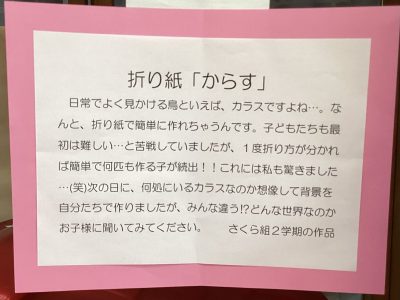 折り紙「からす」
日常でよく見かける鳥といえば、カラスですよね…。な
んと、折り紙で簡単に作れちゃうんです。子どもたちも最
初は難しい…と苦戦していましたが、１度折り方が分かれ
ば簡単で何匹も作る子が続出！！これには私も驚きました
…(笑)次の日に、何処にいるカラスなのか想像して背景を
自分たちで作りましたが、みんな違う!?どんな世界なのか
お子様に聞いてみてください。　　さくら組２学期の作品